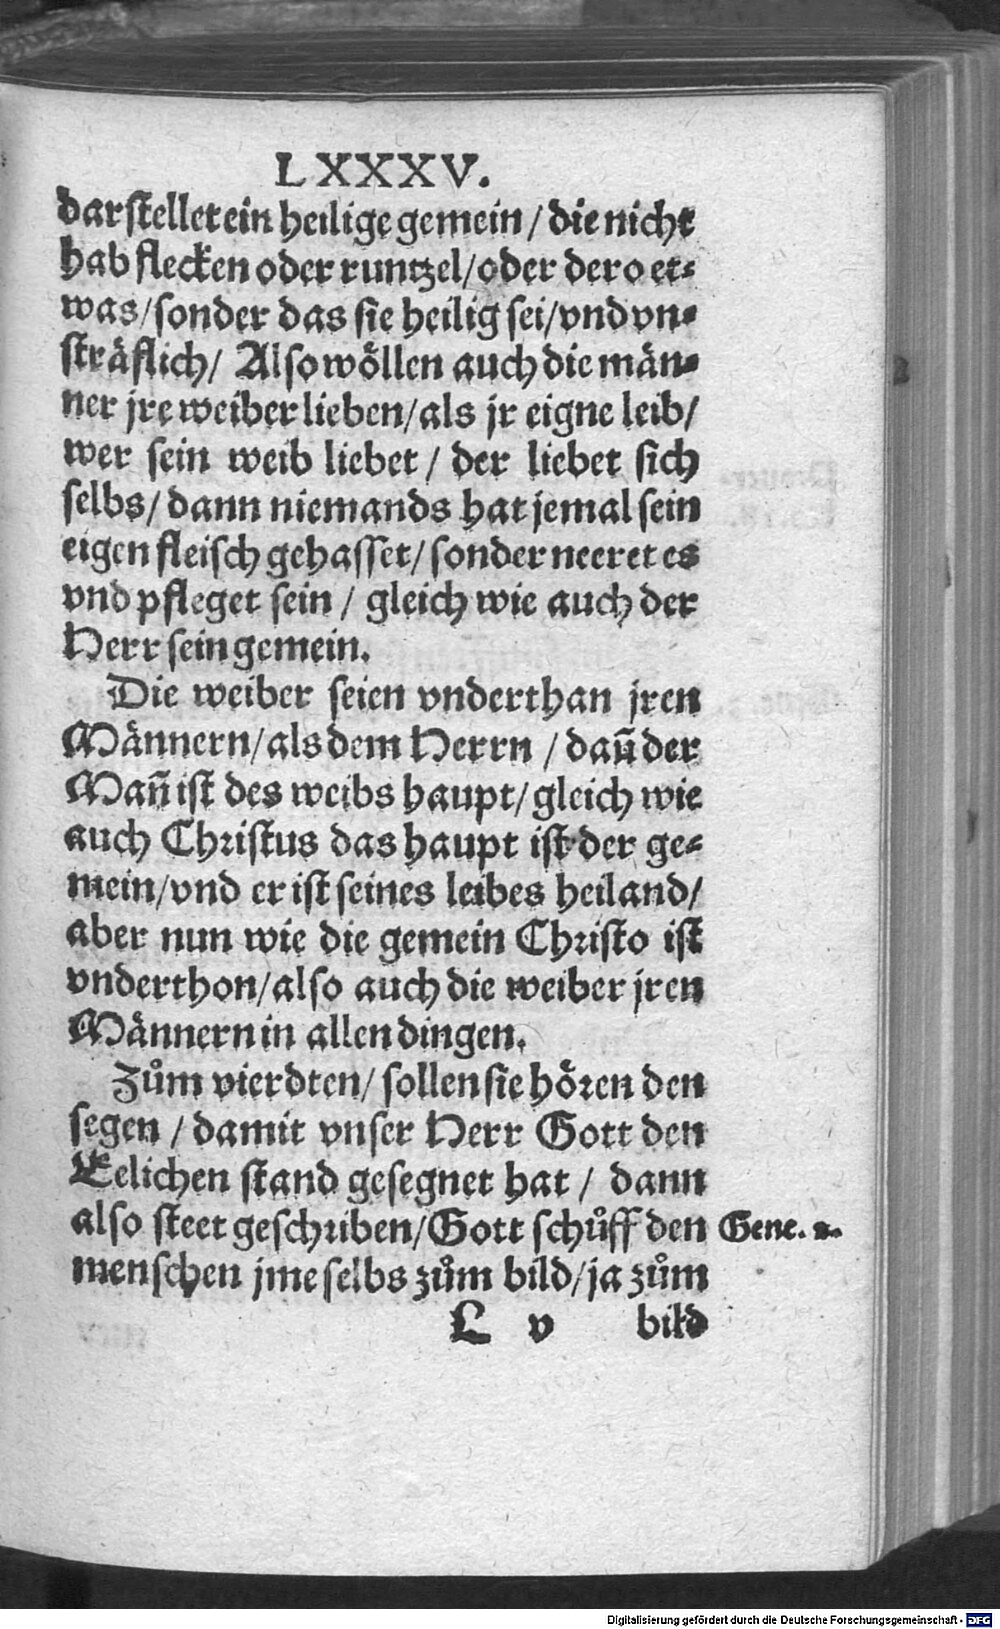 LXXXV.
darstellet ein heilige gemein / die nicht
hab flecken oder runtzel / oder dero et⸗
was / sonder das sie heilig sei / vnd vn⸗
sträflich / Also wöllen auch die män⸗
ner jre weiber lieben / als jr eigne leib /
wer sein weib liebet / der liebet sich
selbs / dann niemands hat jemal sein
eigen fleisch gehasset / sonder neeret es
vnd pfleget sein / gleich wie auch der
Herr sein gemein.
Die weiber seien vnderthan jren
Männern / als dem Herrn / dañ der
Mañ ist des weibs haupt / gleich wie
auch Christus das haupt ist der ge⸗
mein / vnd er ist seines leibes heiland /
aber nun wie die gemein Christo ist
vnderthon / also auch die weiber jren
Männern in allen dingen.
Zům vierdten / sollen sie hören den
segen / damit vnser Herr Gott den
Eelichen stand gesegnet hat / dann
also steet geschriben / Gott schůff den Gene.
menschen jme selbs zům bild / ja zům
L v bild
Digitalisierung gefördert durch die Deutsche Forschungsgemeinschaft - DFG